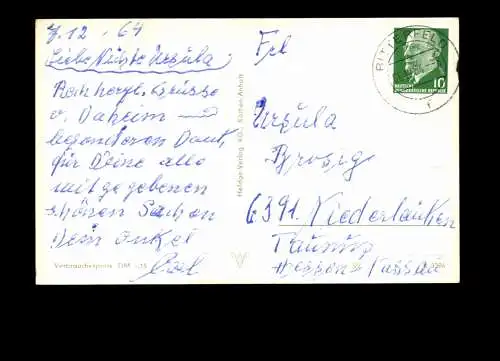 7.12-64
Liebe Nichte Ursula
Recht herzl. Grüsse
v. Daheim
besonderen Dank,
für Deine alle
mitgegebenen
schönen Sachen
Dein Onkel
Frl
Ursula
Brosig
6391. Niederlauken
Taunus
Hessen-Nassau
Verbraucherpreis DM
Heldge-Verlag KG, Köthen-Anhalt
BITTERFELD
DEUTSCHE
DEMOKRATISCHE REPUBLIK
10